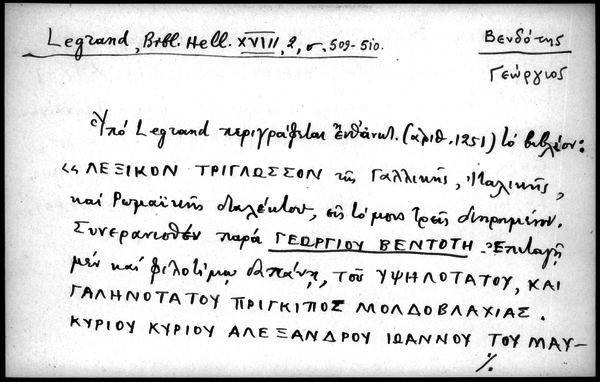 Legrand, Bibl. Hell. XVIII, 2, σ. 509-510.
Βενδότης
Γεώργιος
Ὑπό Legrand περιγράφεται ἐνθάνωτ. (ἀριθ. 1251) τό βιβλίον:
«ΛΕΞΙΚΟΝ ΤΡΙΓΛΩΣΣΟΝ τῆς Γαλλικῆς, Ἰταλικῆς,
καί Ρωμαϊκῆς διαλέκτου, εἰς τόμους τρεῖς διηρημένον.
Συνερανισθέν παρά ΓΕΩΡΓΙΟΥ ΒΕΝΤΟΤΗ. Ἐπιταγῇ
μέν καί φιλοτίμῳ δαπάνῃ, τοῦ ΥΨΗΛΟΤΑΤΟΥ, ΚΑΙ
ΓΑΛΗΝΟΤΑΤΟΥ ΠΡΙΓΚΙΠΟΣ ΜΟΛΔΟΒΛΑΧΙΑΣ.
ΚΥΡΙΟΥ ΚΥΡΙΟΥ ΑΛΕΞΑΝΔΡΟΥ ΙΩΑΝΝΟΥ ΤΟΥ ΜΑΥ-
./.